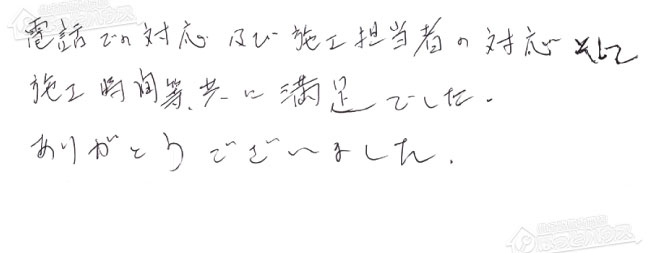 電話での対応及び施工担当者の対応そして
施工時間等、共に満足でした.
ありがとうございました.